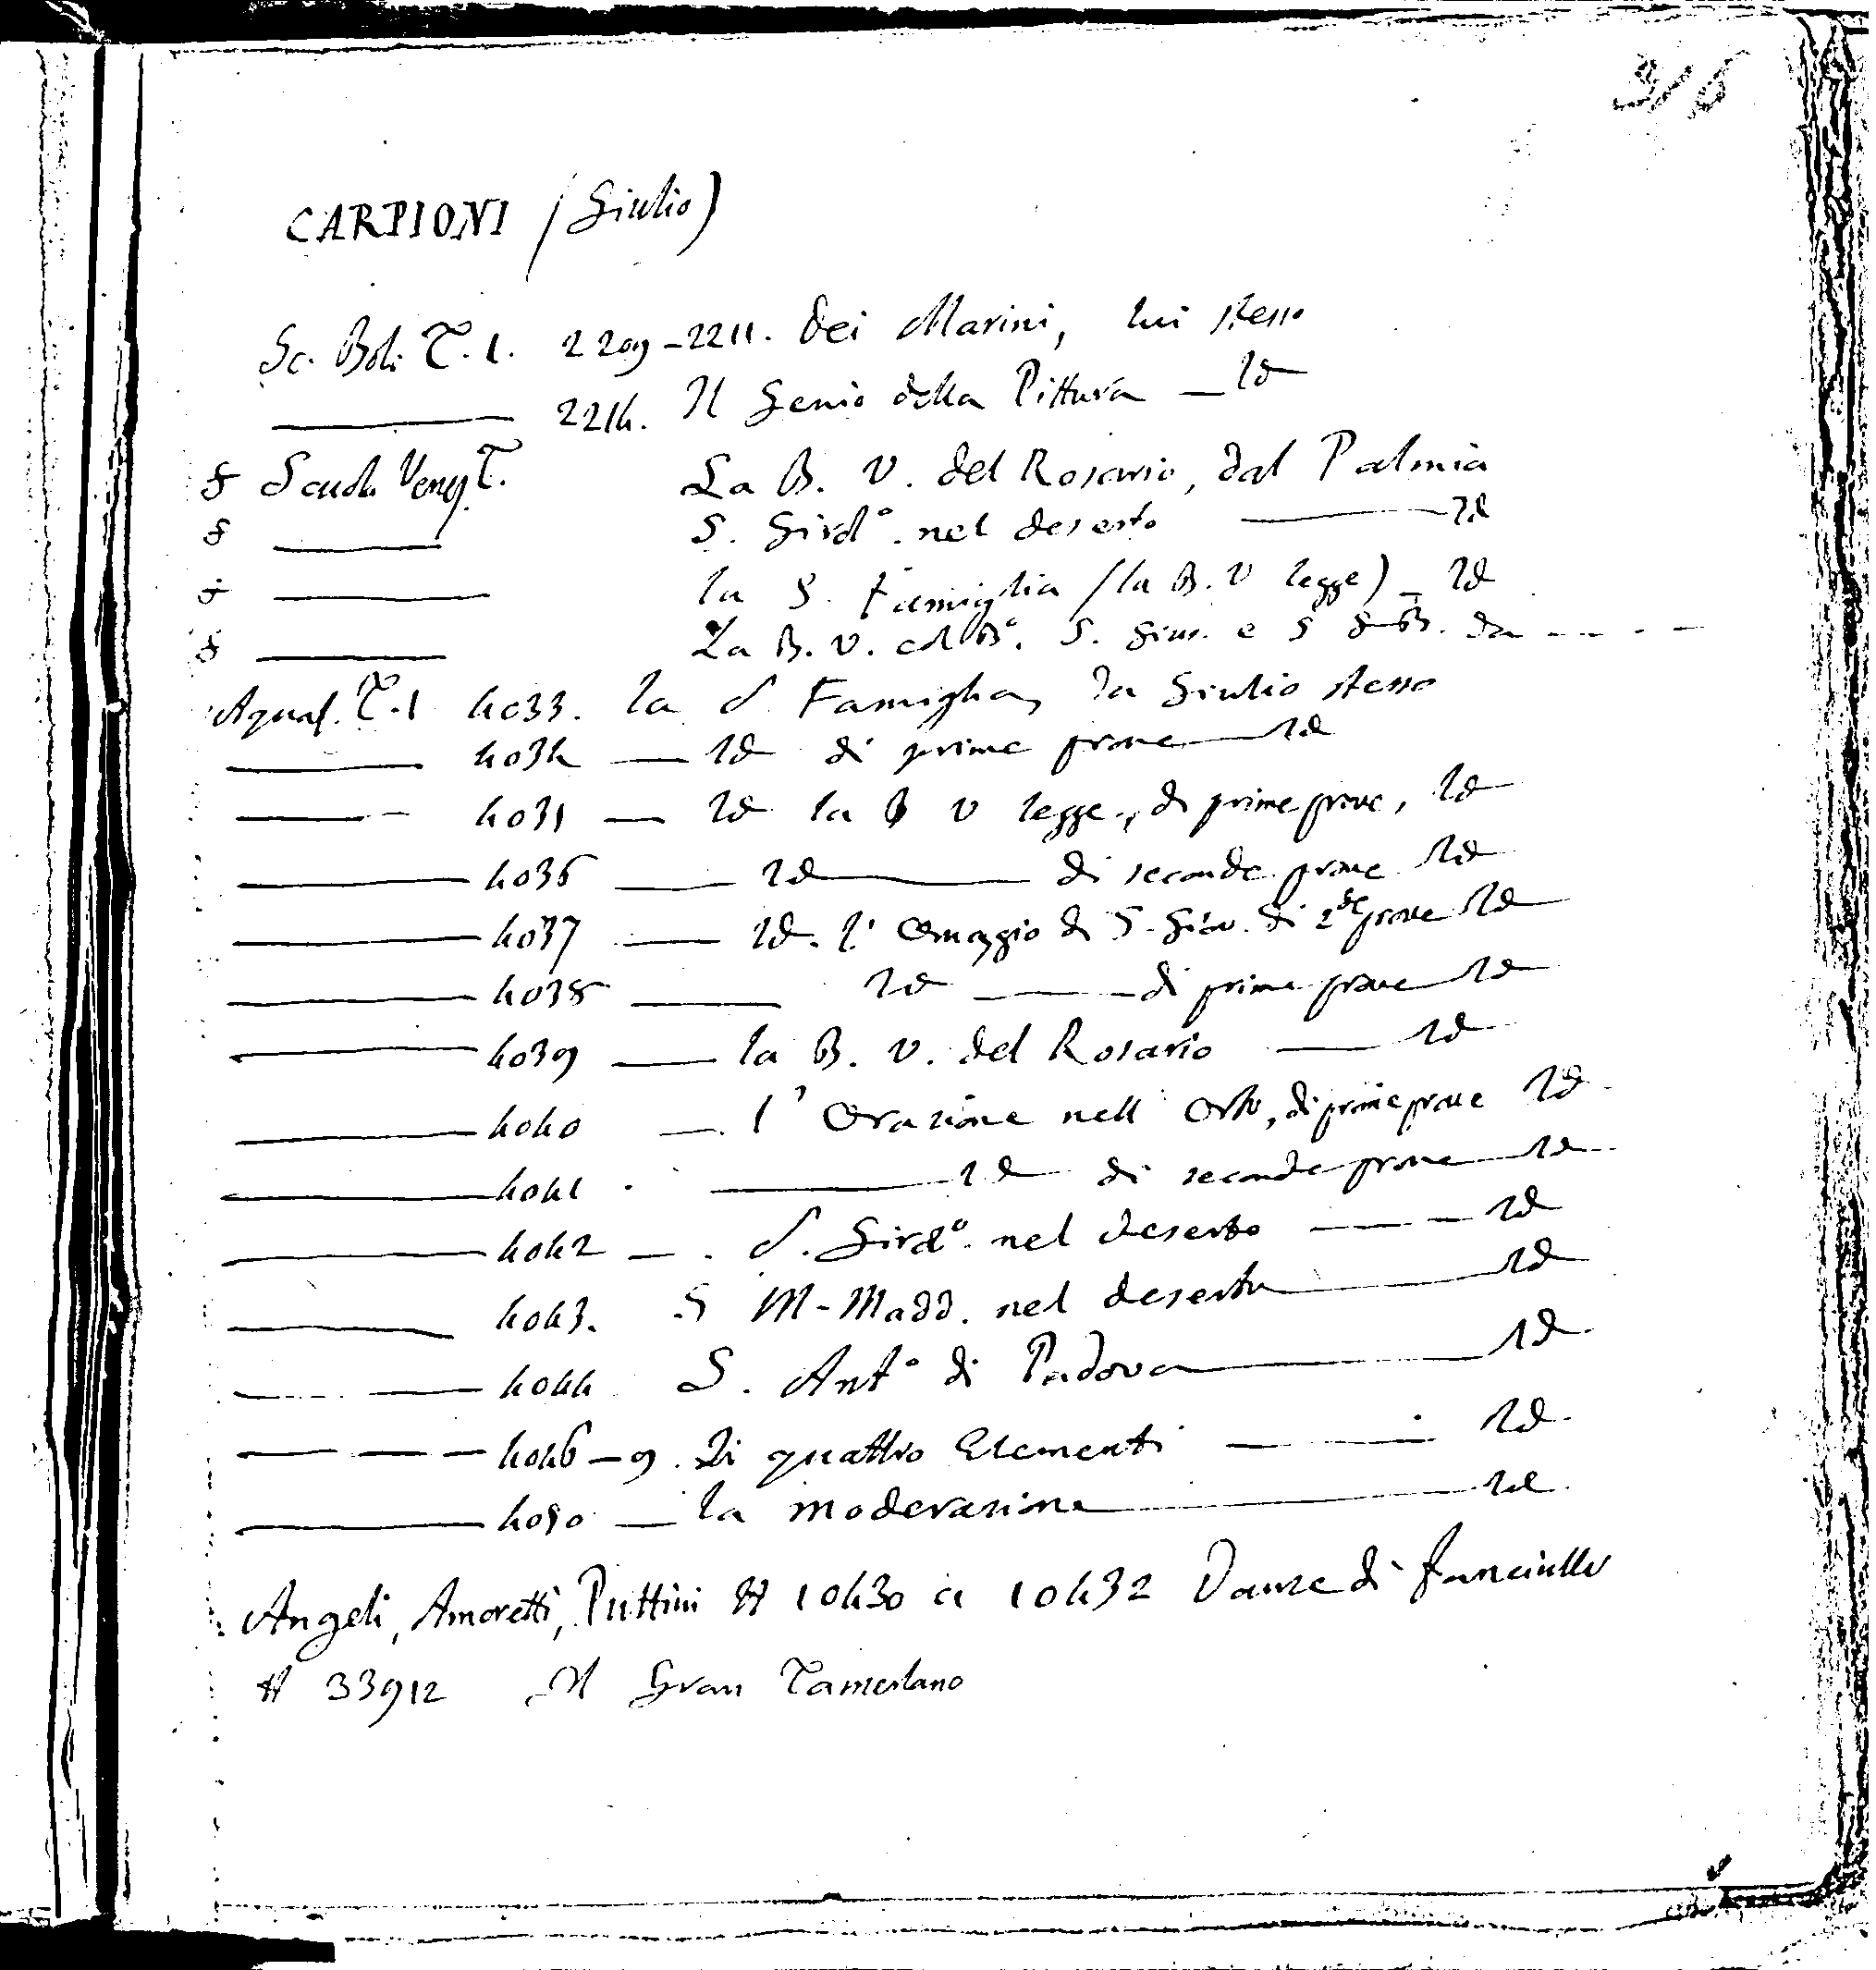 316
CARPIONI (Giulio)
Sc. Bol. T. 1. 2209-2211. Dei Marini, lui stesso
——— 2214. Il Genio della Pittura — Id
§ Scuola Venez. T. La B. V. del Rosario, dal Palmia
§ ——— S. Girol°. nel deserto ——— Id
——— la S. Famiglia (la B. V legge) — Id
§ ——— La B. V. col B°. S. Gius. e S G B. da - - - -
Aquaf. T. 1 4033. la S. Famiglia, da Giulio stesso
——— 4034 — Id di prime prove — Id
——— 4035 — Id la B V legge, di prime prove, Id
——— 4036 — Id ——— di seconde prove Id
——— 4037 — Id. l' Omaggio di S. Giov. di 2de prove Id
——— 4038 ——— Id ——— di prime prove Id
——— 4039 — la B. V. del Rosario — Id
——— 4040 — l' Orazione nell Orto, di prime prove Id
——— 4041 . ——— Id di seconde prove — Id
——— 4042 — . S. Girol°. nel deserto ——— Id
——— 4043. S M-Madd. nel deserto ——— Id
——— 4044 S. Ant° di Padova ——— Id
——— 4046-9. Li quattro Elementi ——— Id
——— 4050 — la moderazione ——— Id
Angeli, Amoretti, Puttini # 10430 a 10432 Danze di fanciulli
# 33912 Il Gran Tamerlano